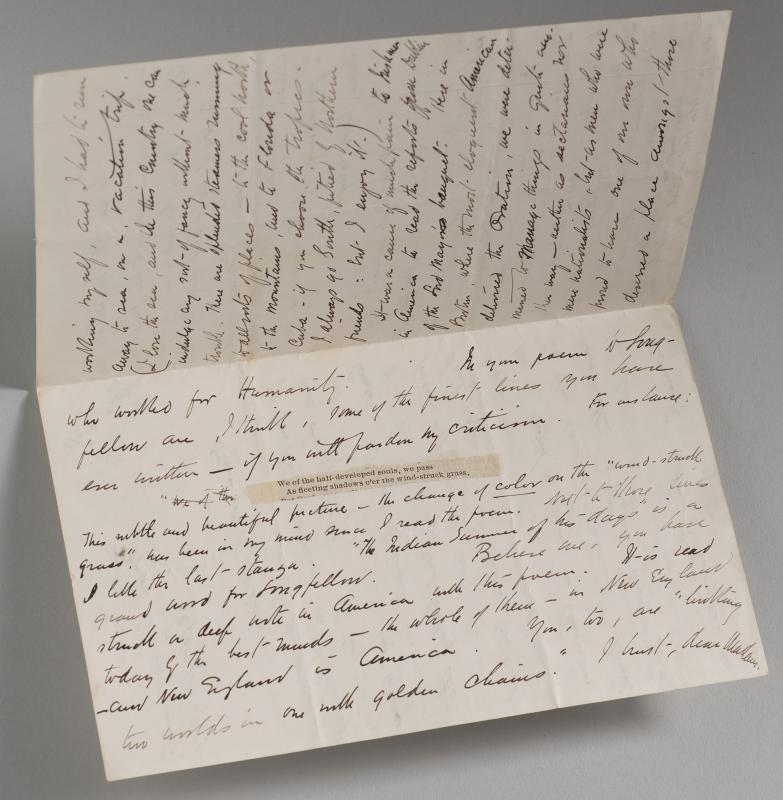 working myself, and I had to run
away to sea, on a vacation trip.
(I love the sea, and in this Country one can
indulge any sort of fancy without much
trouble. There are splendid steamers running
to all sorts of places — to the cool North,
to the Mountains, and to Florida or
Cuba — if you choose, the tropics.
I always go South, pitied by Northern
friends: but I enjoy it.)
It was a cause of much pain to Irishmen
in America to read the reports from Dublin
of the Lord Mayor's banquet. Here in
Boston, where the most eloquent American
delivered the Oration, we were deter-
mined to Manage things in quite ano-
ther way — neither as sectarians nor
mere nationalists, but as men who were
proud to have one of our own who
deserved a place amongst those
who worked for Humanity. In your poem to Long-
fellow are, I think, some of the finest lines you have
ever written — if you will pardon my criticism. For instance:
"We of the
We of the half-developed souls, we pass
As fleeting shadows o'er the wind-struck grass,
This subtle and beautiful picture — the change of color on the "wind-struck
grass", has been in my mind since I read the poem. Next to those lines
I like the last stanza. "The Indian Summer of his days" is a
grand word for Longfellow. Believe me, you have
struck a deep note in America with this poem. It is read
today by the best minds — the whole of them — in New England
— and New England is America. You, too, are "linking
two worlds in one with golden chains." I trust, dear Madam,